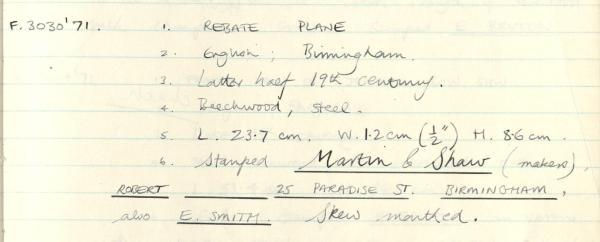 F.3030'71. 1. REBATE PLANE
2. English; Birmingham.
3. Latter half 19th century.
4. Beechwood, steel.
5. L. 23.7 cm. W. 1.2 cm (½") H. 8.6 cm.
6. Stamped Martin & Shaw (makers),
ROBERT 25 PARADISE ST. BIRMINGHAM,
also E. SMITH. Skew mouthed.